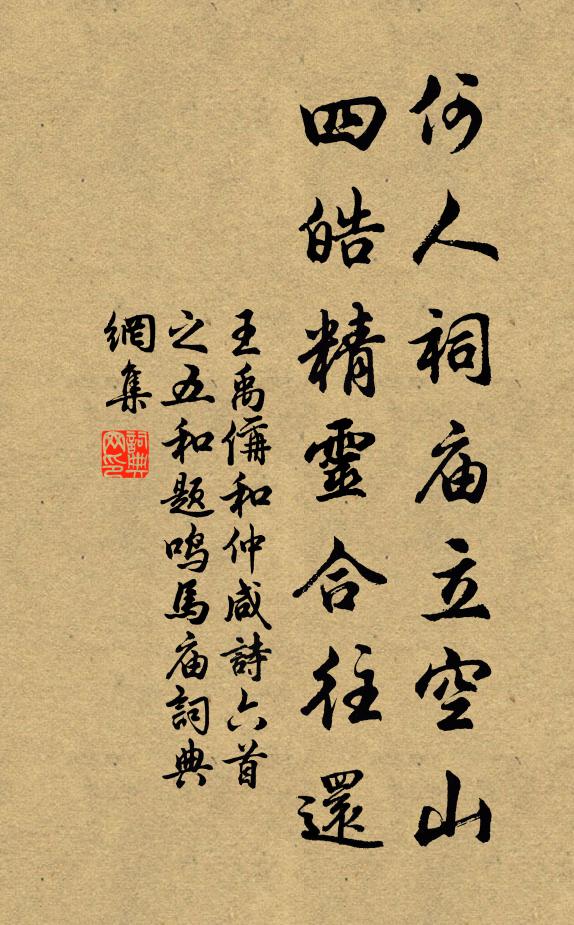 何人祠庙立空山
四皓精靈合往還
王禹偁和仲咸詩六首
之五和题鸣馬庙詞典
網集
詞典网印